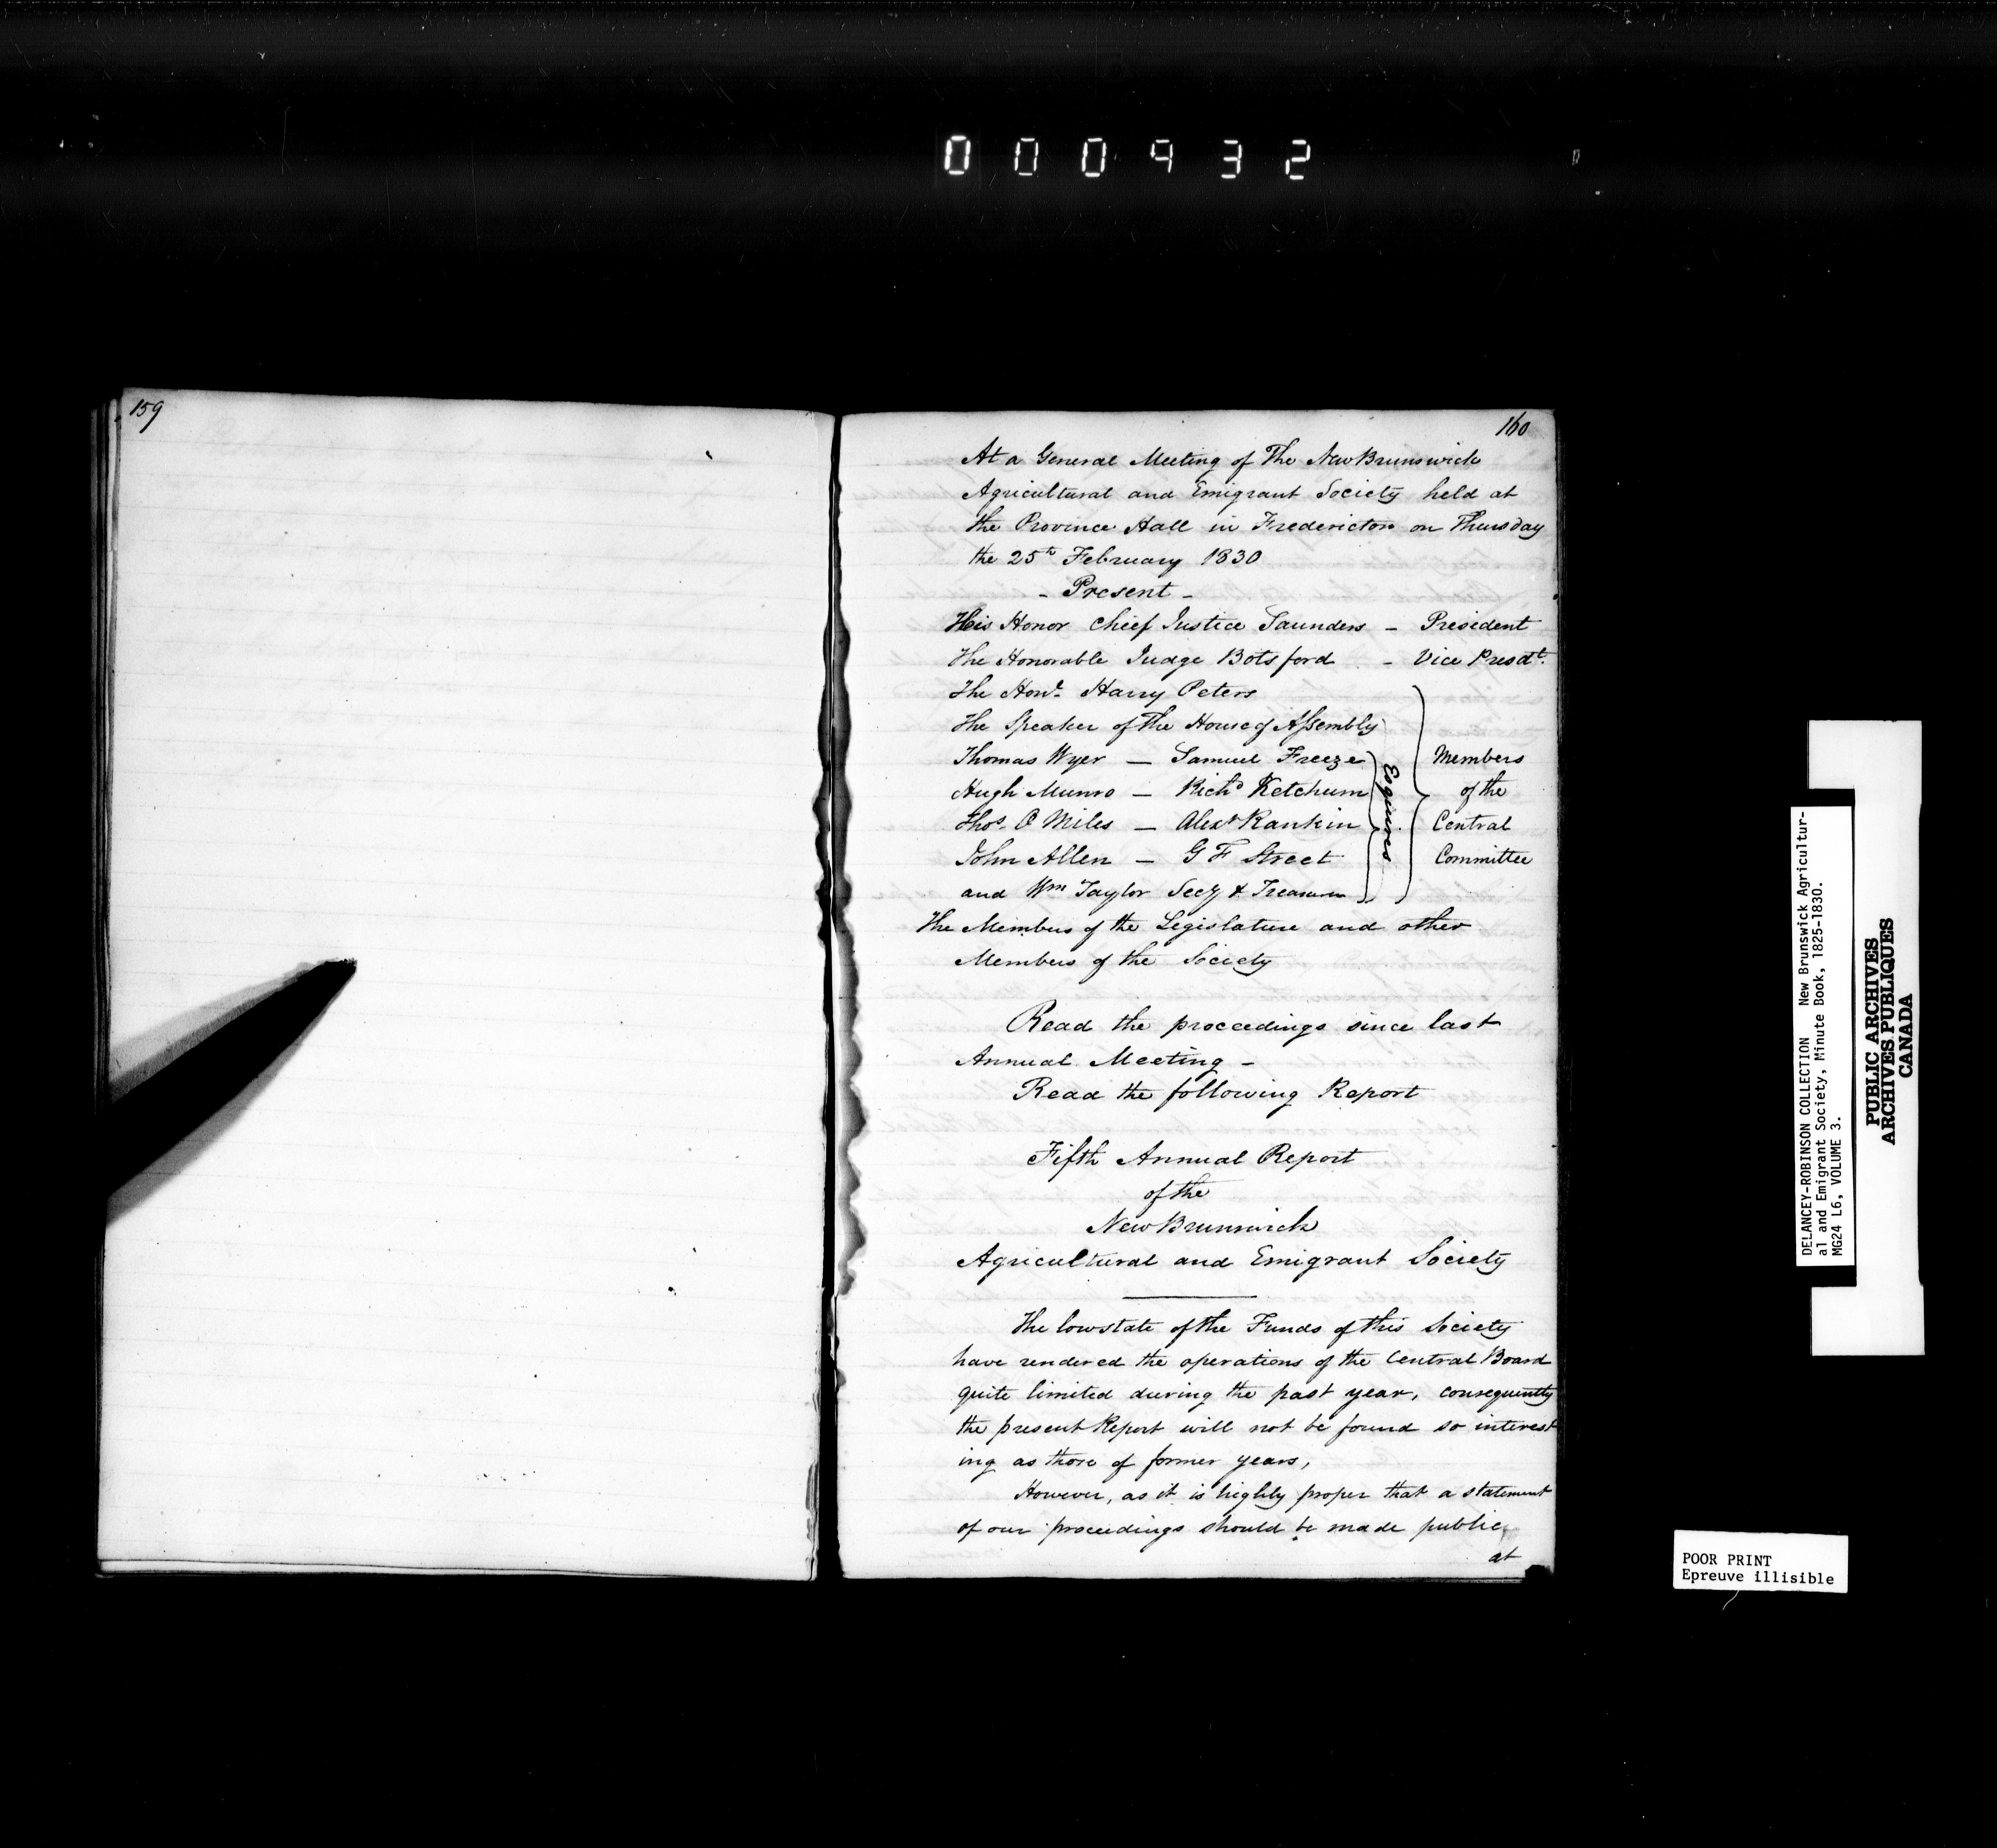 000932
159
160
At a General Meeting of The New Brunswick
Agricultural and Emigrant Society held at
the Province Hall in Fredericton on Thursday
the 25th February 1830
- Present -
His Honor Chief Justice Saunders - President
The Honorable Judge Botsford - Vice Presdt.
The Honl. Harry Peters
The Speaker of the House of Assembly
Thomas Wyer — Samuel Freeze
Hugh Munro — Richd Ketchum
Thos. O Miles — Alexr Rankin
John Allen — G F Street
and Wm Taylor Secy & Treasurer
Esquires
Members
of the
Central
Committee
The Members of the Legislature and other
Members of the Society
Read the proceedings since last
Annual Meeting -
Read the following Report
Fifth Annual Report
of the
New Brunswick
Agricultural and Emigrant Society
The low state of the Funds of this Society
have rendered the operations of the Central Board
quite limited during the past year, consequently
the present Report will not be found so interest
ing as those of former years,
However, as it is highly proper that a statement
of our proceedings should be made public,
at
DELANCEY-ROBINSON COLLECTION New Brunswick Agricultur-
al and Emigrant Society, Minute Book, 1825-1830.
MG24 L6, VOLUME 3.
PUBLIC ARCHIVES
ARCHIVES PUBLIQUES
CANADA
POOR PRINT
Epreuve illisible